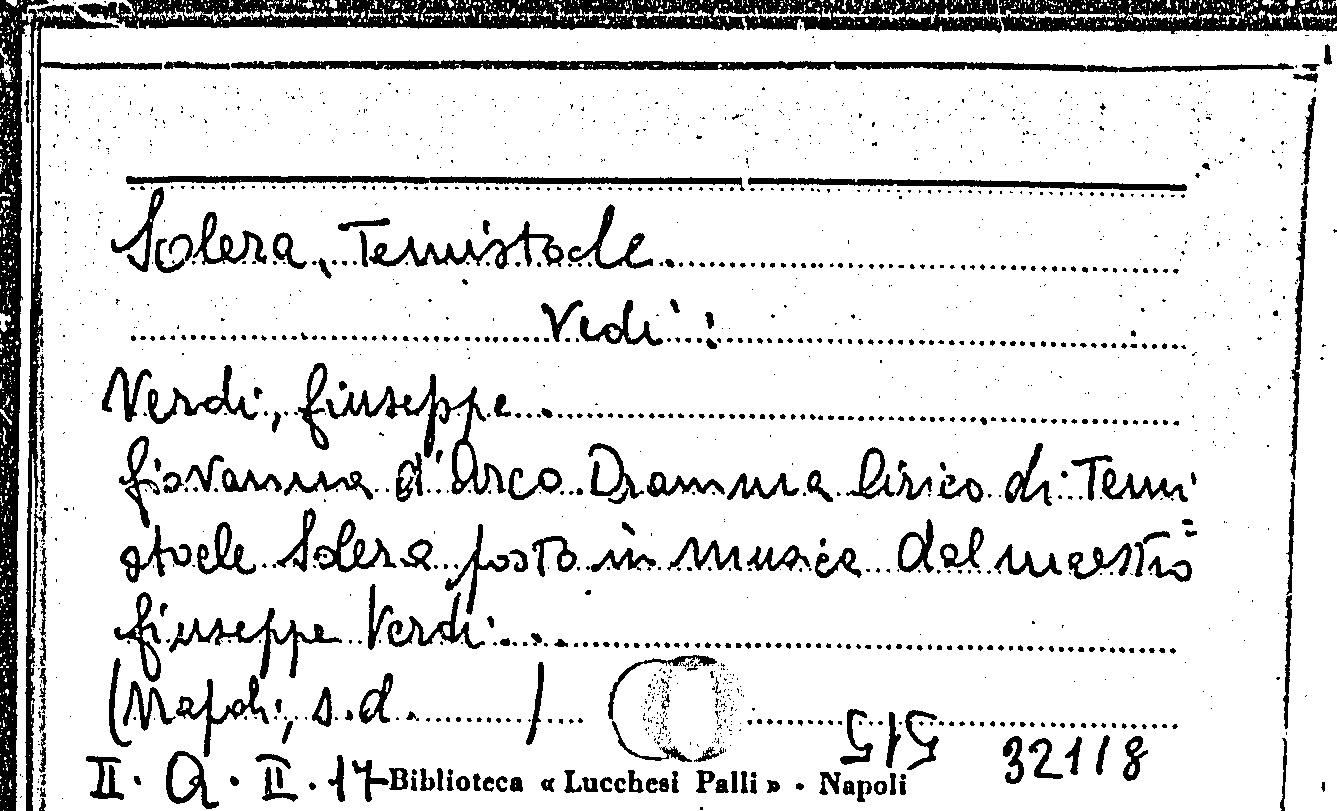 Solera, Temistocle.
Vedi:
Verdi, Giuseppe.
Giovanna d'Arco. Dramma lirico di Temi=
stocle Solera posto in musica dal maestro
Giuseppe Verdi...
(Napoli, s.d. )
515 321/8
II. Q. II. 17 Biblioteca « Lucchesi Palli » - Napoli